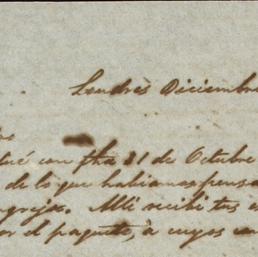 Londres Diciembre
con fha 31 de Octubre
de lo que habiamos pensa
recibi tus
or el paquete, á cuyos con